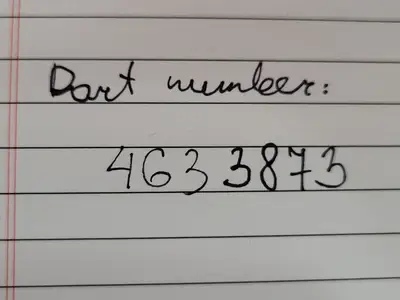 Part number:
4633873